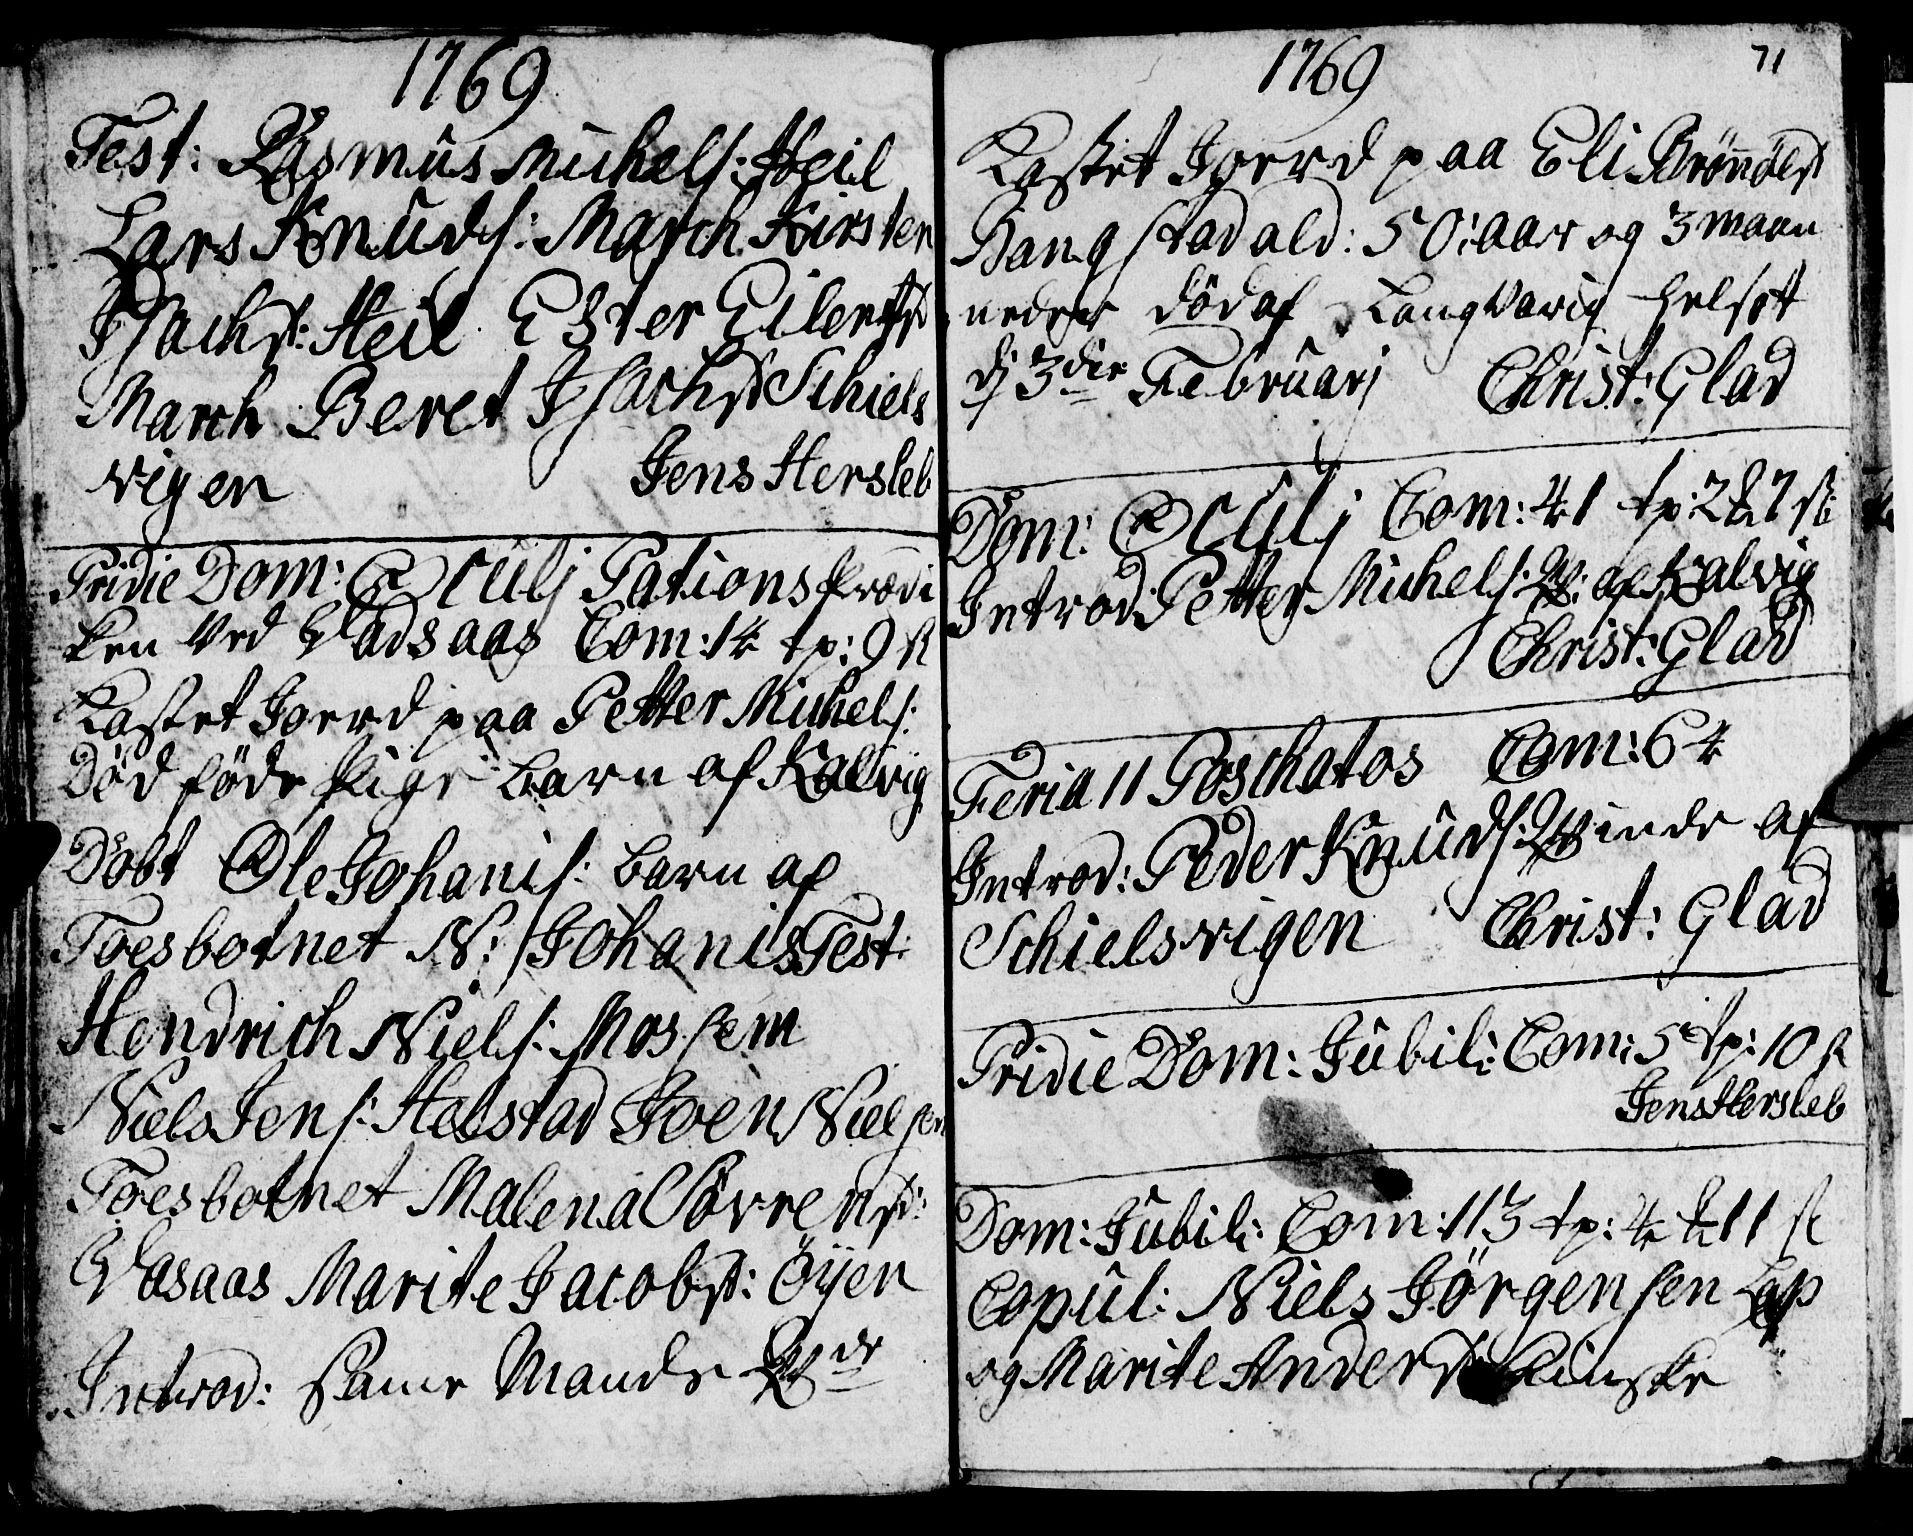 1769
Test: Rasmus Michels: Heil
Lars Knuds: March Kirsten
Isachsd: Heil Ester Eilertsd
March Beret Isachsd Schiels
vigen Jens Hersleb
Pridie Dom: Oculj Stations Prædi
ken ved Vadsaas Com: 14 tp: 9 sk
Kastet Jorrd paa Petter Michels:
Død fødr Pige barn af Kalvig
Døbt Ole Johanis: barn af
Toesbotnet N: Johanis Test
Hendrich Niels: Mossem
Niels Jens: Helstad Joen Nielsen
Toesbotnet Malena Sørrensd:
Vasaas Marite Jacobsd: Öyen
Introd: samme Mands Qvde
1769
71
Kastet Jorrd paa Eli Brönnölsd
Bangstad ald: 50 aar og 3 maan
neder död af Langvarig Helsot
dj 3die Februarj Christ: Glad
Dom: Oculj Com: 41 tp: 2 & 7 sk
Introd: Petter Michels: Qv: af Kalvig
Christ: Glad
Feria 11 Poschatos Com: 64
Introd: Peder Knuds: Qvinde af
Schielsvigen Christ: Glad
Pridie Dom: Jubil: Com: 5 tp: 10 sk
Jens Hersleb
Dom: Jubil: Com: 113 tp: 4 & 11 sk
Copul: Niels Jörgensen Lap
og Marite Andersd Finske